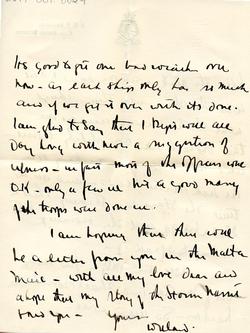 It's good to get one bad week over
now - as each ship only has so much
and if we get it over with its done.
I am glad to say that I Begin well all
Day long with never a suggestion of
illness - in fact most of the Officers were
O.K - only a few ill but a good many
of the troops were done in.
I am hoping that there will
be a letter from you in the Malta
Mail - with all my love dear and
hope that my story of the Storm
you -
Yours